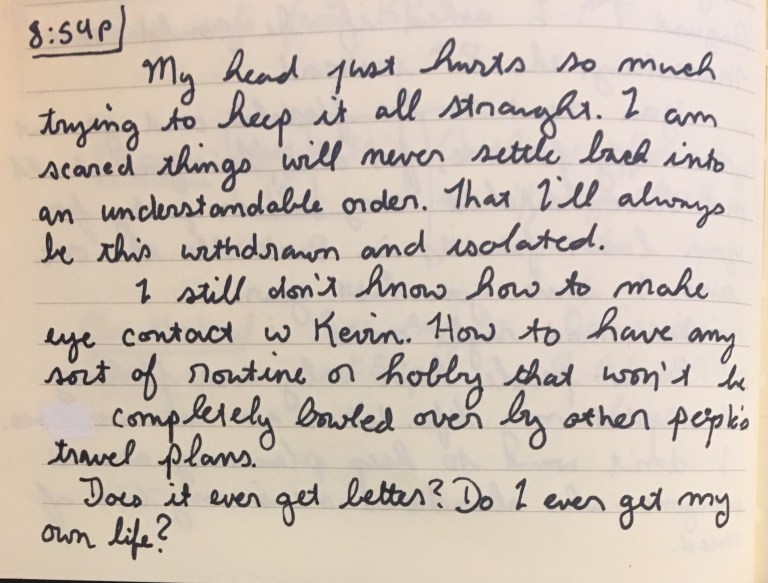 8:54p
My head just hurts so much
trying to keep it all straight. I am
scared things will never settle back into
an understandable order. That I'll always
be this withdrawn and isolated.
I still don't know how to make
eye contact w Kevin. How to have any
sort of routine or hobby that won't be
completely bowled over by other people's
travel plans.
Does it ever get better? Do I ever get my
own life?